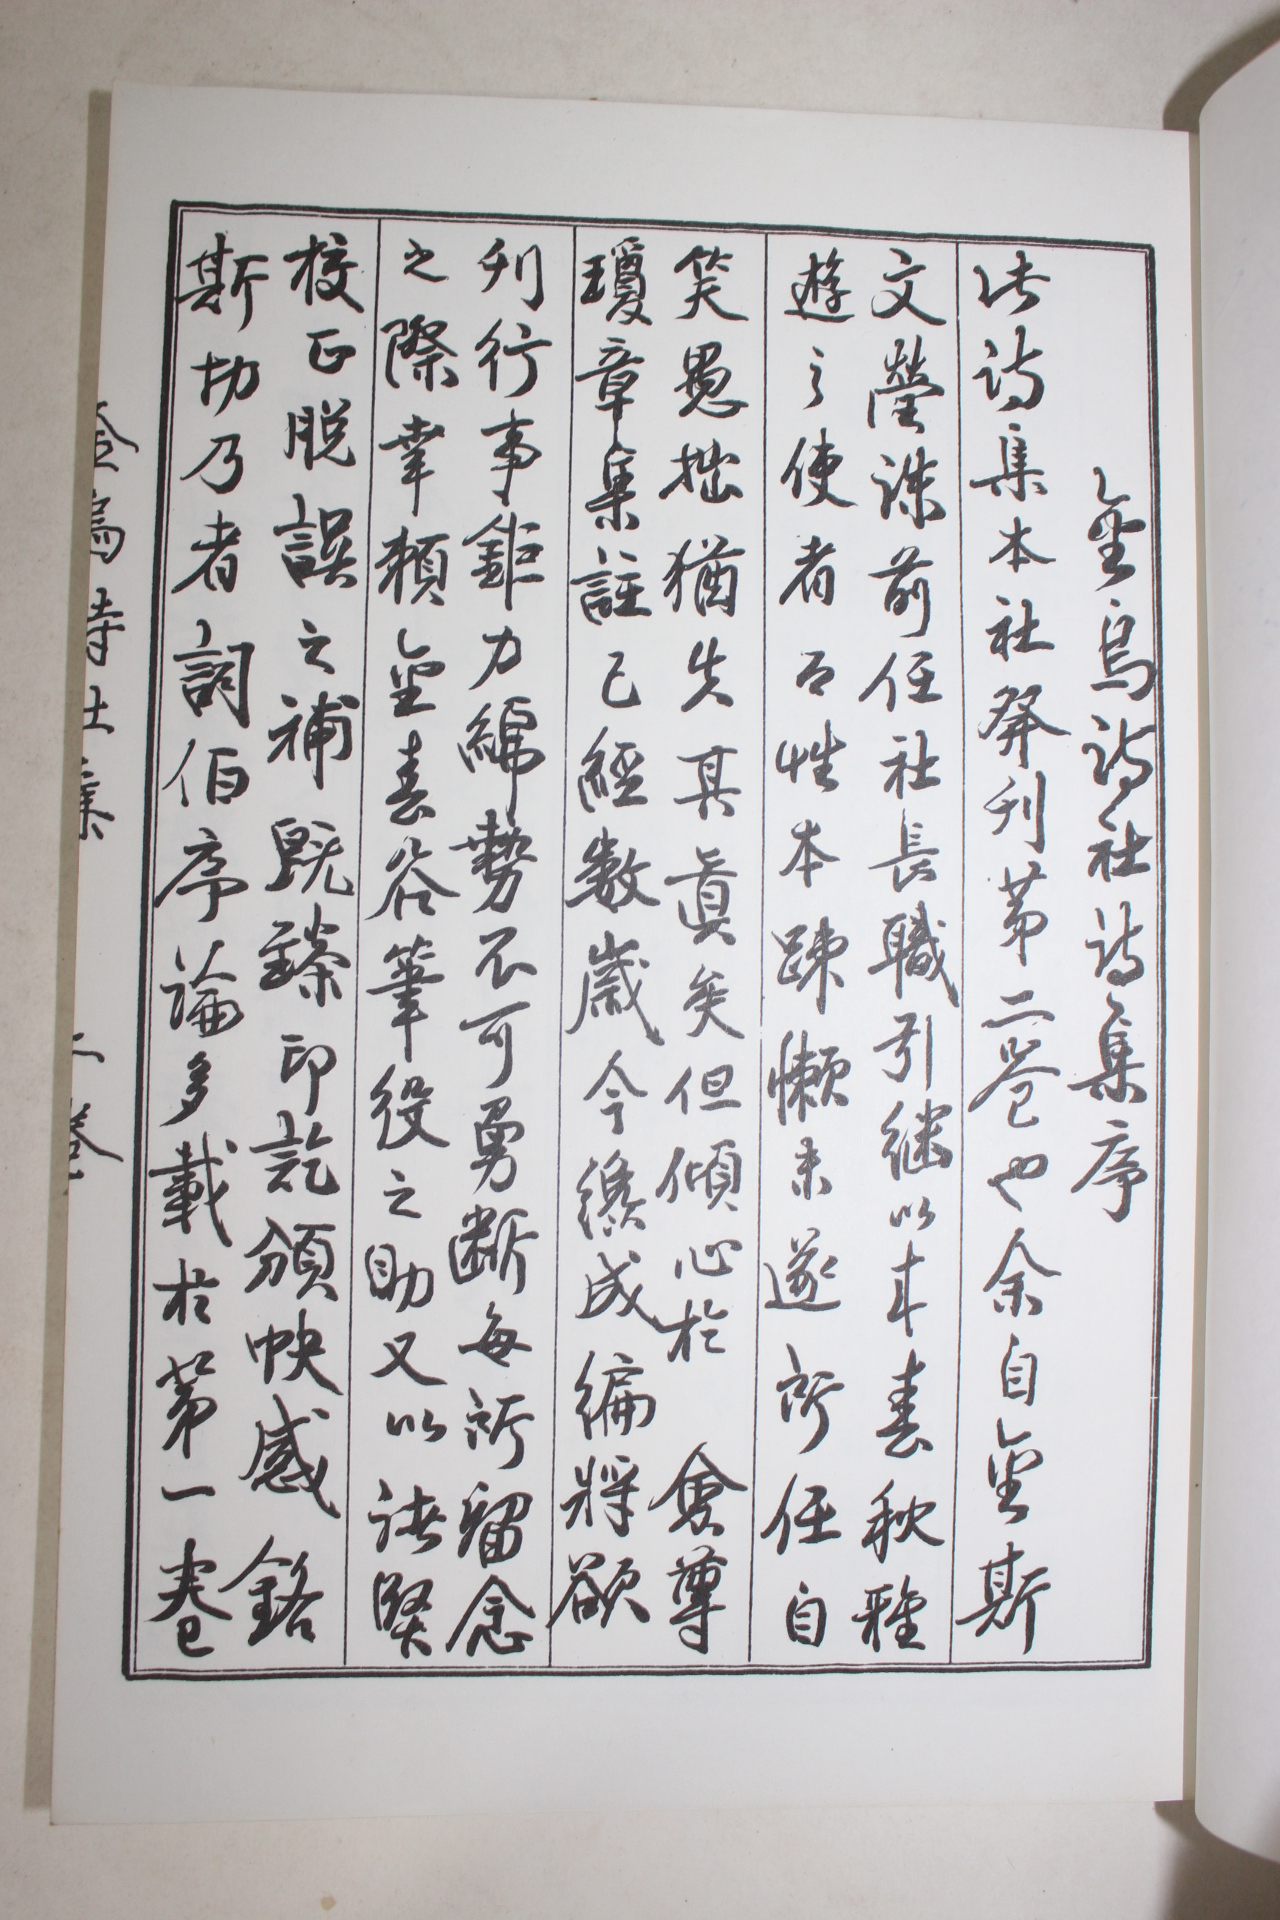 金烏詩社詩集序
此詩集本社發刊第二卷也余自金斯
文瑩洙前任社長職引継以来春秋雅
遊之使者而性本踈懶未遂所任自
笑愚拙猶失其眞矣但傾心於 會尊
瓊章集註已經數歲今纔成編將欲
刊行事鉅力綿勢不可勇斷每所留念
之際幸賴金喜谷筆役之助又以諸賢
校正脫誤之補旣臻印訖頒帙感銘
斯切乃者詞伯序論多載於第一卷
金烏詩社集 二卷